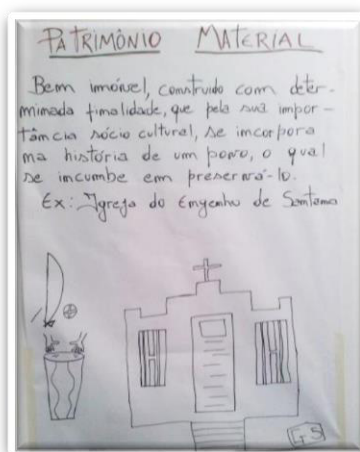 PATRIMÔNIO MATERIAL
Bem imóvel, construído com deter-
minada finalidade, que pela sua impor-
tância sócio cultural, se incorpora
na história de um povo, o qual
se incumbe em preservá-lo.
Ex: Igreja do Engenho de Santana
GS